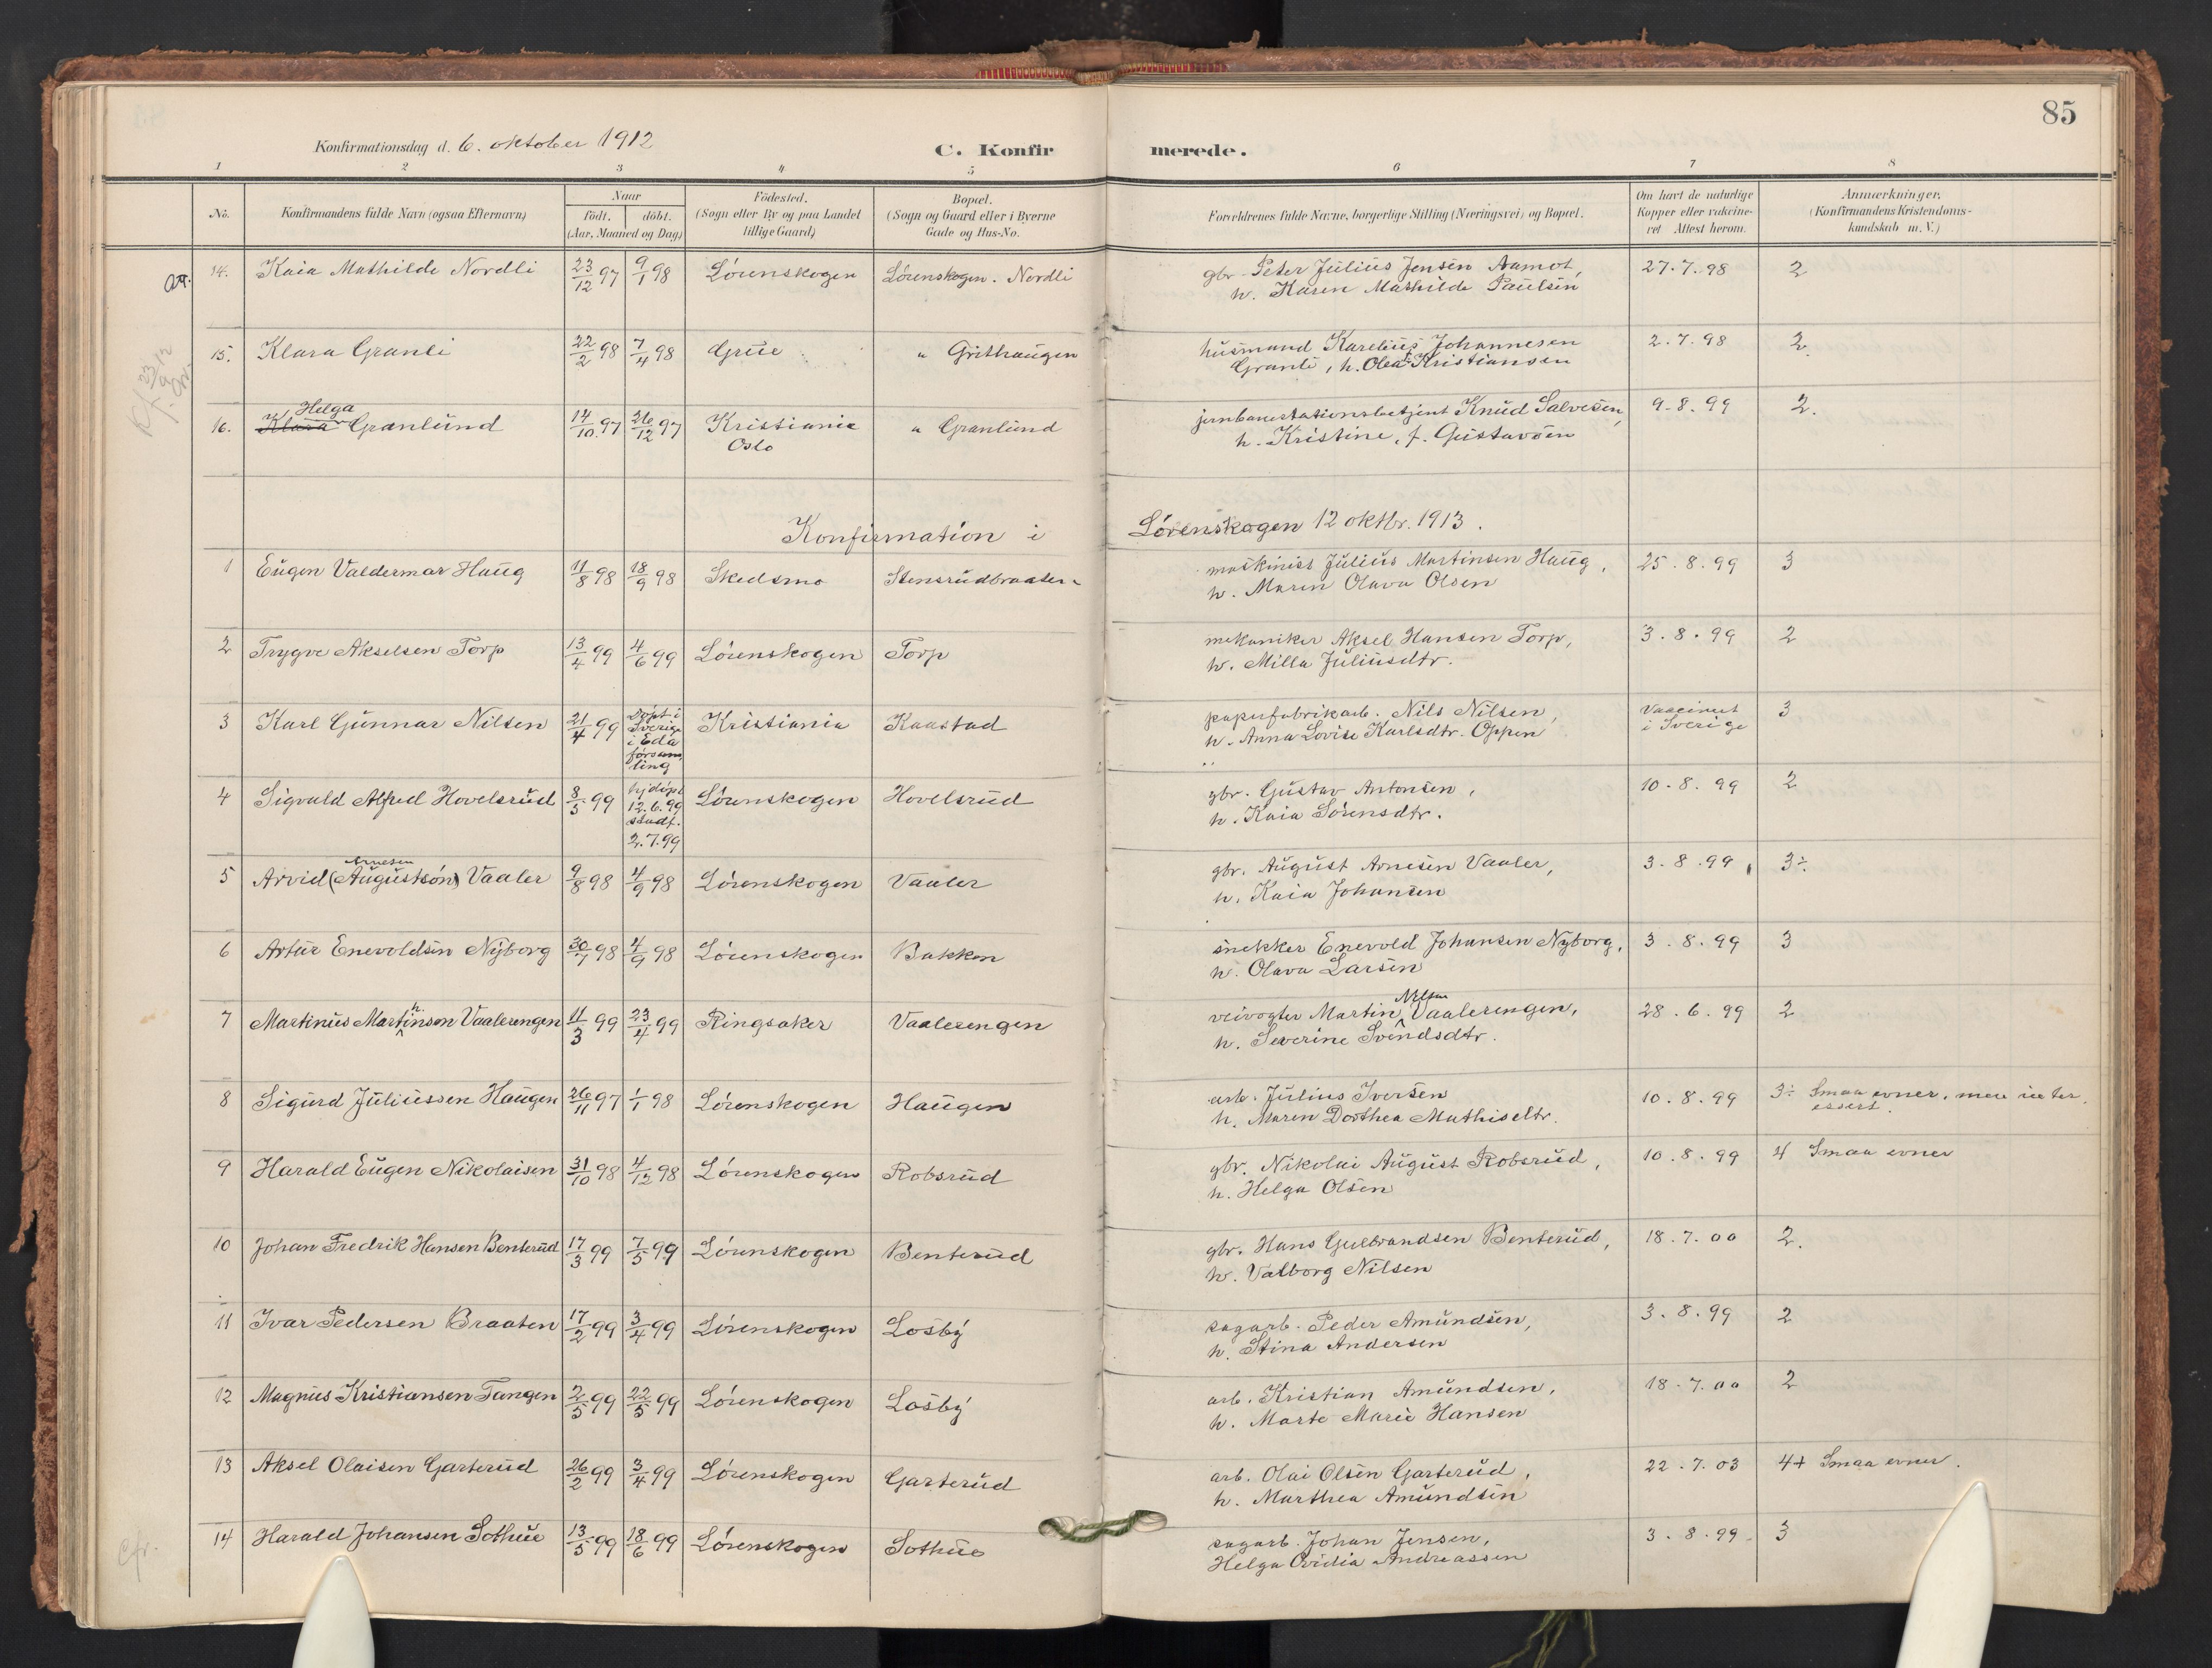 85
Konfirmationsdag d. 6. oktober 1912
C. Konfirmerede.
1 2 3 4 5 6 7 8
No. Konfirmandens fulde Navn (ogsaa Efternavn)
Naar
födt. döbt.
(Aar, Maaned og Dag)
Födested.
(Sogn eller By og paa Landet
tillige Gaard)
Bopæl.
(Sogn og Gaard eller i Byerne
Gade og Hus-No.
Forældrenes fulde Navne, borgerlige Stilling (Næringsvei) og Bopæl.
Om havt de naturlige
Kopper eller vakcine-
ret Attest herom.
Anmærkninger.
(Konfirmandens Kristendoms-
kundskab m. V.)
14. Kaia Mathilde Nordli 23/12 97 9/1 98 Lørenskogen Lørenskogen. Nordli gbr. Peter Julius Jensen Aamot, 27.7.98 2
h. Karen Mathilde Paulsen
15. Klara Granli 22/2 98 7/4 98 Grue " Grithaugen husmand Karelius Johannesen 2.7.98 2.
Granli, h. Olea Kristiansen
Helga
16. Klara Granlund 14/10 97 26/12 97 Kristiania " Granlund jernbanestationsbetjent Knud Salvesen, 9.8.99 2.
Oslo h. Kristine, f. Gustavsen
Konfirmation i Lørenskogen 12 oktbr. 1913.
1 Eugen Valdermar Haug 11/8 98 18/9 98 Skedsmo Stensrudbraaten maskinist Julius Martinsen Haug, 25.8.99 3
h. Maren Olava Olsen
2 Trygve Akselsen Torp 13/4 99 4/6 99 Lørenskogen Torp mekaniker Aksel Hansen Torp, 3.8.99 2
h. Milla Juliusdtr.
3 Karl Gunnar Nilsen 21/4 99 Döpt i Sverige i Eda församling Kristiania Kaastad papirfabrikarb. Nils Nilsen, Vaccineret i Sverige 3
h. Anna Lovise Karlsdtr. Oppen
4 Sigvald Alfred Hovelsrud 8/5 99 hjdöpt 12.6.99 stadf. 2.7.99 Lørenskogen Hovelsrud gbr. Gustav Antonsen, 10.8.99 2
h. Kaia Sørensdtr.
Arnesen
5 Arvid (Augustsön) Vaaler 9/8 98 4/9 98 Lørenskogen Vaaler gbr. August Arnesen Vaaler, 3.8.99 3÷
h. Kaia Johansen
6 Artur Enevoldsen Nyborg 30/7 98 4/9 98 Lørenskogen Bakken snekker Enevold Johansen Nyborg, 3.8.99 3
h. Olava Larsen
7 Martinius Martinsen Vaalerengen 11/3 99 23/4 99 Ringsaker Vaalerengen veivogter Martin Nilsen Vaalerengen, 28.6.99 2
h. Severine Svendsdtr.
8 Sigurd Juliussen Haugen 26/11 97 1/1 98 Lørenskogen Haugen arb. Julius Iversen 10.8.99 3÷ Smaa evner, men inter
essert.
h. Maren Dorthea Mathisdtr.
9 Harald Eugen Nikolaisen 31/10 98 4/12 98 Lørenskogen Robsrud gbr. Nikolai August Robsrud, 10.8.99 4 Smaa evner
h. Helga Olsen
10 Johan Fredrik Hansen Benterud 17/3 99 7/5 99 Lørenskogen Benterud gbr. Hans Gulbrandsen Benterud, 18.7.00 2.
h. Valborg Nilsen
11 Ivar Pedersen Braaten 17/2 99 3/4 99 Lørenskogen Losby sagarb. Peder Amundsen, 3.8.99 2
h. Stina Andersen
12 Magnus Kristiansen Tangen 2/5 99 22/5 99 Lørenskogen Losby arb. Kristian Amundsen, 18.7.00 2
h. Marte Marie Hansen
13 Aksel Olaisen Garterud 26/2 99 3/4 99 Lørenskogen Garterud arb. Olai Olsen Garterud, 22.7.03 4+ Smaa evner.
h. Marthea Amundsen
cfr.
14 Harald Johansen Sothue 13/5 99 18/6 99 Lørenskogen Sothue sagarb. Johan Jensen, 3.8.99 3
Helga Ovidia Andreassen